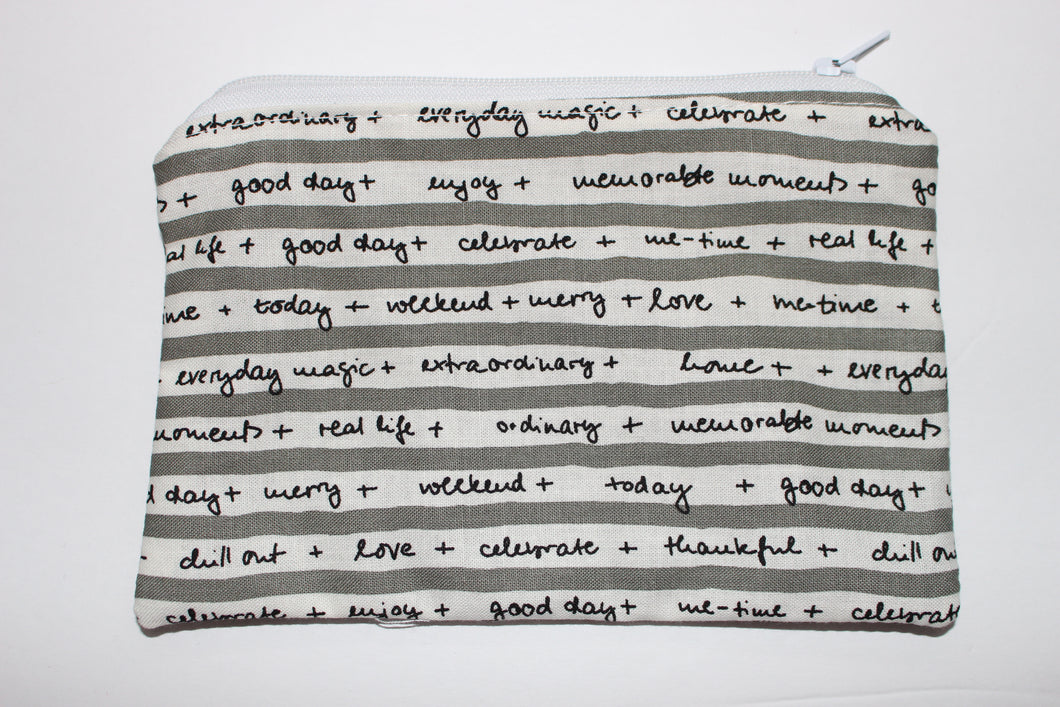 extraordinary + everyday magic + celebrate + extra
+ good day + enjoy + memorable moments + go
al life + good day + celebrate + me-time + real life +
ime + today + weekend + merry + love + me-time + t
everyday magic + extraordinary + home + + everyda
moments + real life + ordinary + memorable moments
day + merry + weekend + today + good day +
chill out + love + celebrate + thankful + chill ou
celebrate + enjoy + good day + me-time + celebrat